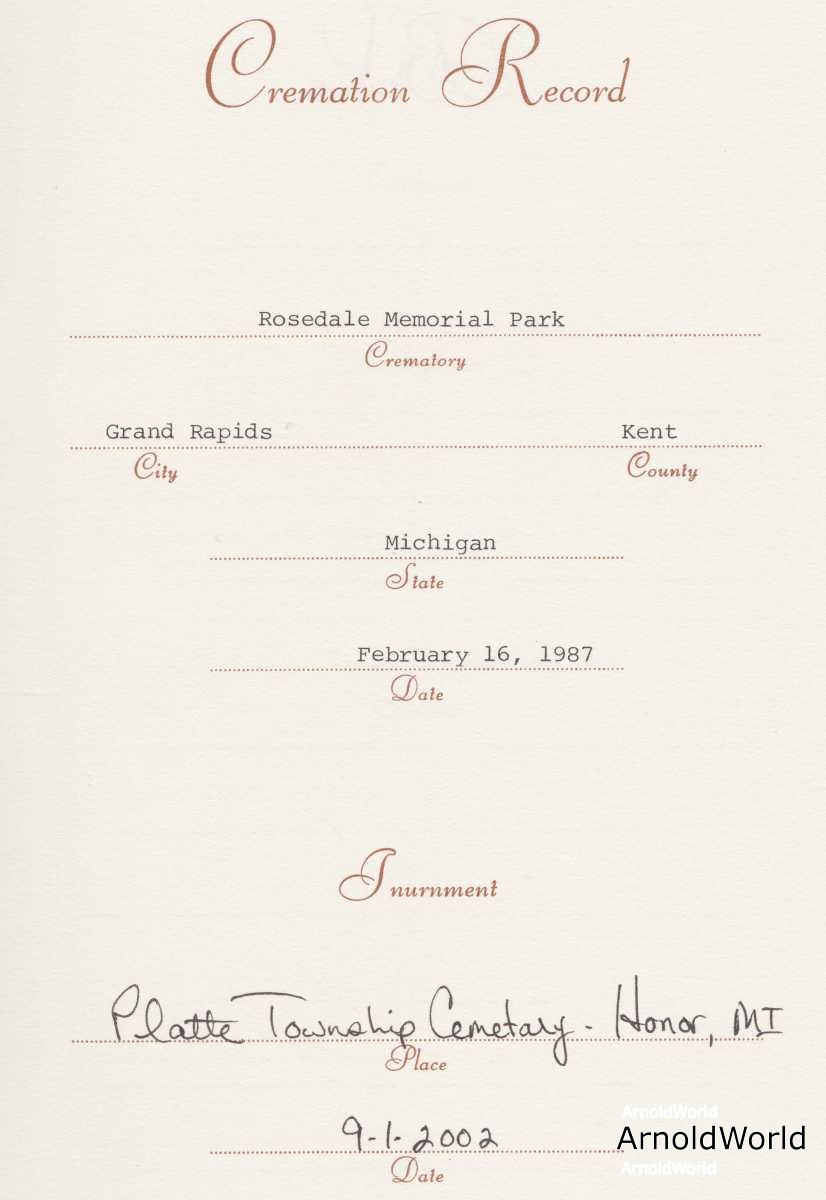 Cremation Record
Rosedale Memorial Park
Crematory
Grand Rapids Kent
City County
Michigan
State
February 16, 1987
Date
Inurnment
Platte Township Cemetary - Honor, MI
Place
ArnoldWorld
9-1-2002 ArnoldWorld
Date ArnoldWorld